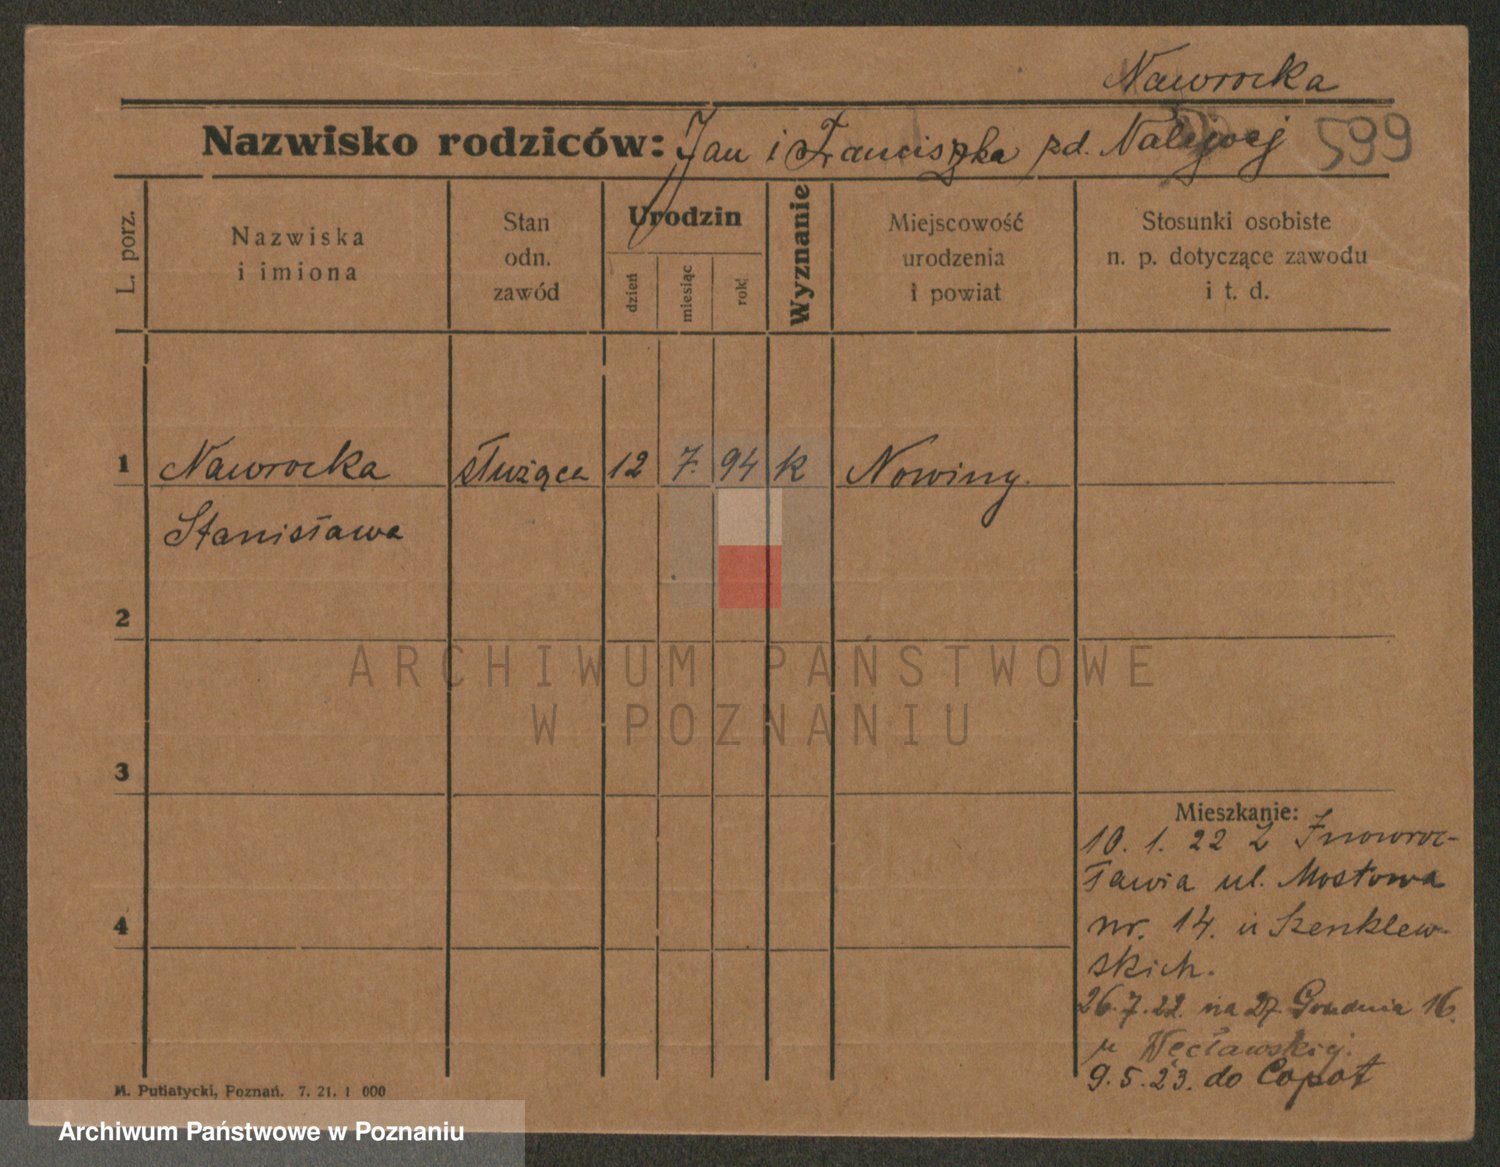 Nawrocka
Nazwisko rodziców: Jan i Franciszka zd. 599
L. porz.
Nazwiska i imiona
Stan odn. zawód
Urodzin
dzień
miesiąc
rok
Wyznanie
Miejscowość urodzenia i powiat
Stosunki osobiste n. p. dotyczące zawodu i t. d.
1 Nawrocka służąca 12 7. 94 k Nowiny.
Stanisława
2
ARCHIWUM PAŃSTWOWE
W POZNANIU
3
Mieszkanie:
10. 1. 22 z Inowroc-
ławia ul. Mostowa
4 nr. 14. u Szenklew-
skich.
26.7.22. na 27 Grudnia 16.
u Węcławskiej.
9.5.23. do Copot
M. Putiatycki, Poznań. 7. 21. 1 000
Archiwum Państwowe w Poznaniu